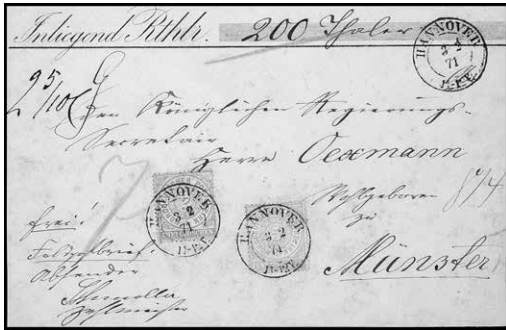 Inliegend Rthlr. 200 Thaler
HANNOVER
3 2
71
95/10
Den Königlichen Regierungs-
Secretair
Herrn Oexmann
Wohlgeboren
zu
Münster
HANNOVER
3 2
71
HANNOVER
3 2
71
frei!
Absender
Zahlmeister